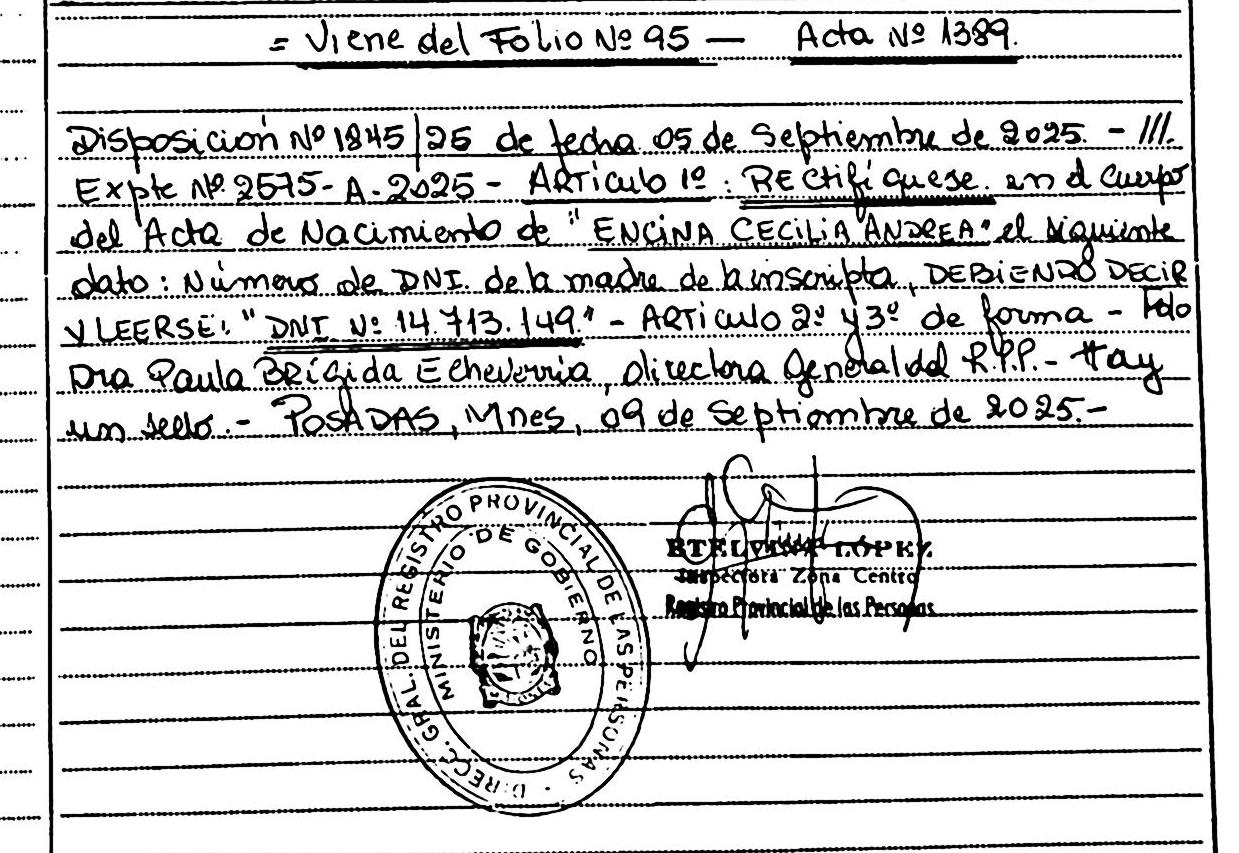 = Viene del Folio Nº 95 — Acta Nº 1389.
Disposición Nº 1845/25 de fecha 05 de Septiembre de 2025. - ///.
Expte Nº 2575-A-2025 - ARTículo 1º : RECtifíquese en el cuerpo
del Acta de Nacimiento de "ENCINA CECILIA ANDREA" el siguiente
dato : Número de DNI. de la madre de la inscripta, DEBIENDO DECIR
Y LEERSE: "DNI Nº 14.713.149." - ARTículo 2º y 3º de forma - Fdo
Dra Paula BRígida Echeverria, directora General del R.P.P. - Hay
un sello. - POSADAS, Mnes, 09 de Septiembre de 2025. -
DIRECC. GRAL. DEL REGISTRO PROVINCIAL DE LAS PERSONAS
MINISTERIO DE GOBIERNO
ETELVINA LÓPEZ
Inspectora Zona Centro
Registro Provincial de las Personas